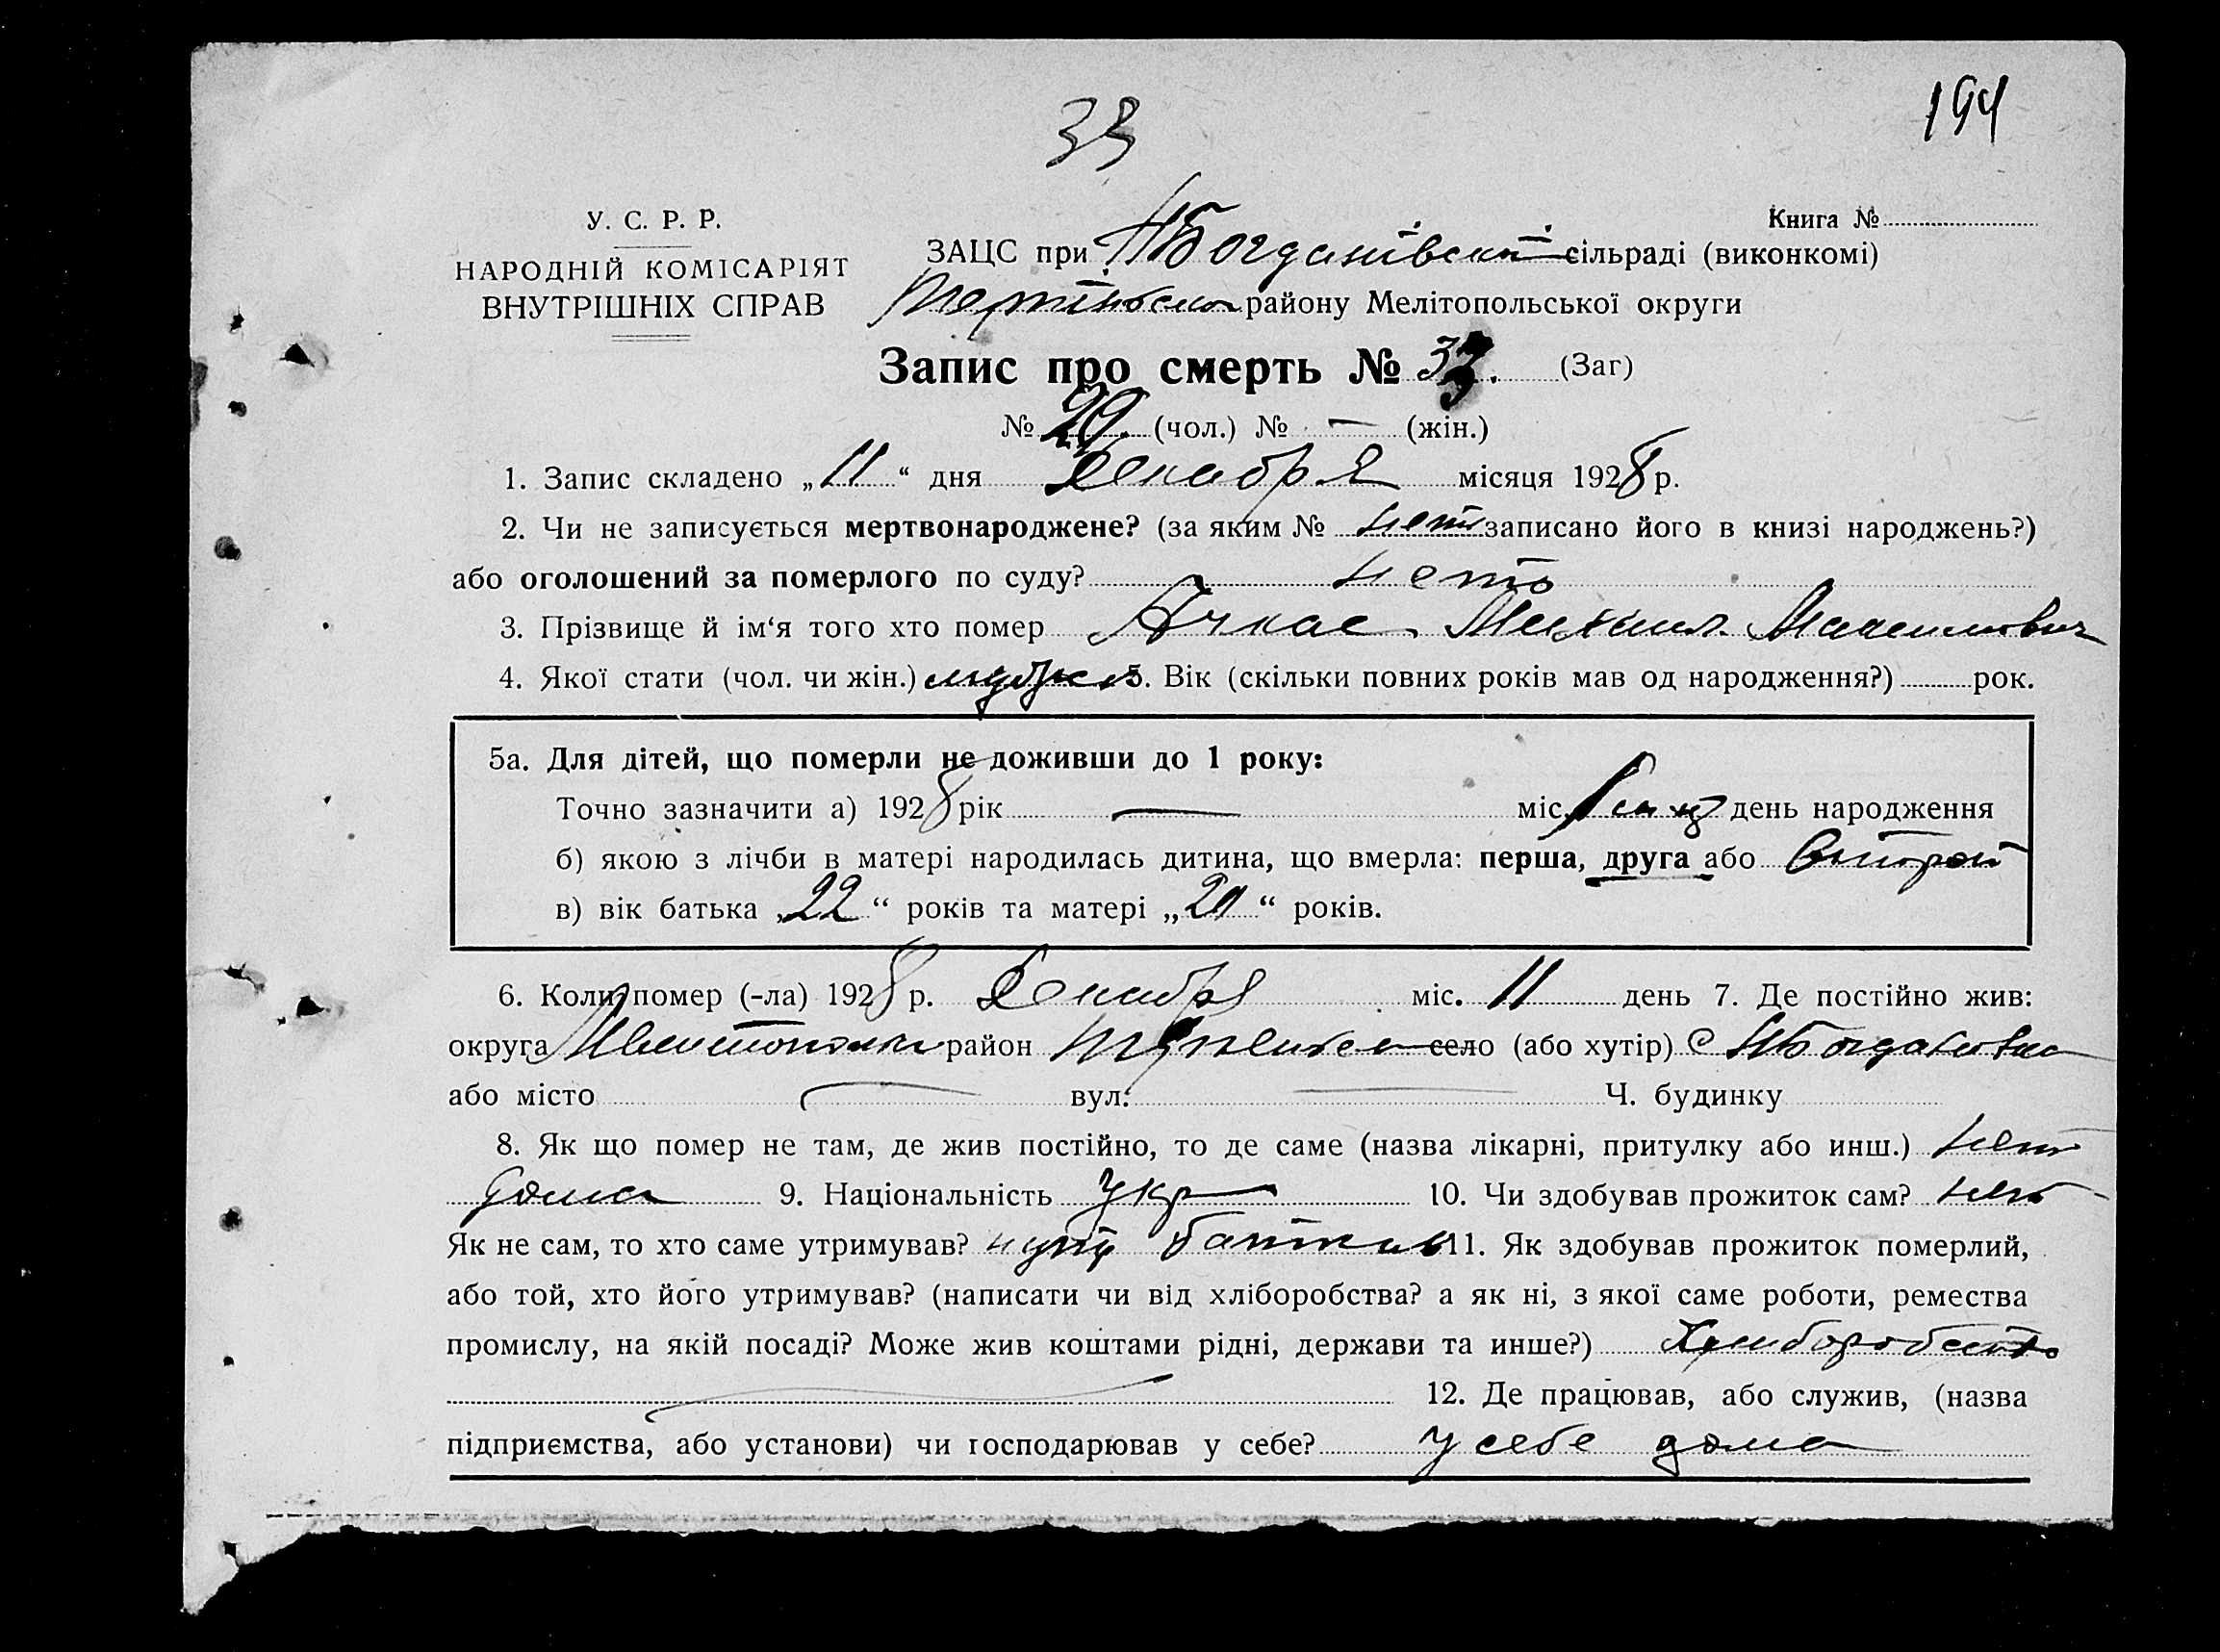 33
194
У. С. Р. Р.
НАРОДНІЙ КОМІСАРІЯТ
ВНУТРІШНІХ СПРАВ
Книга №
ЗАЦС при НБогданівскій сільраді (виконкомі)
району Мелітопольської округи
Запис про смерть № 33. (Заг)
№ 20 (чол.) № — (жін.)
1. Запис складено „11“ дня Декабря місяця 1928 р.
2. Чи не записується мертвонароджене? (за яким № нет записано його в книзі народжень?)
або оголошений за померлого по суду? нет
3. Прізвище й ім‘я того хто помер Михаил Максимович
4. Якої стати (чол. чи жін.) 5. Вік (скільки повних років мав од народження?) рок.
5а. Для дітей, що померли не доживши до 1 року:
Точно зазначити а) 1928 рік — міс. день народження
б) якою з лічби в матері народилась дитина, що вмерла: перша, друга або второй
в) вік батька „22“ років та матері „20“ років.
6. Коли помер (-ла) 1928 р. Декабря міс. 11 день 7. Де постійно жив:
округа район село (або хутір) с НБогдановка
або місто — вул. — Ч. будинку
8. Як що помер не там, де жив постійно, то де саме (назва лікарні, притулку або инш.) нет
дома 9. Національність Укр 10. Чи здобував прожиток сам? нет
Як не сам, то хто саме утримував? 11. Як здобував прожиток померлий,
або той, хто його утримував? (написати чи від хліборобства? а як ні, з якої саме роботи, ремества
промислу, на якій посаді? Може жив коштами рідні, держави та инше?) Хлиборобство
12. Де працював, або служив, (назва
підприємства, або установи) чи господарював у себе? у себе дома